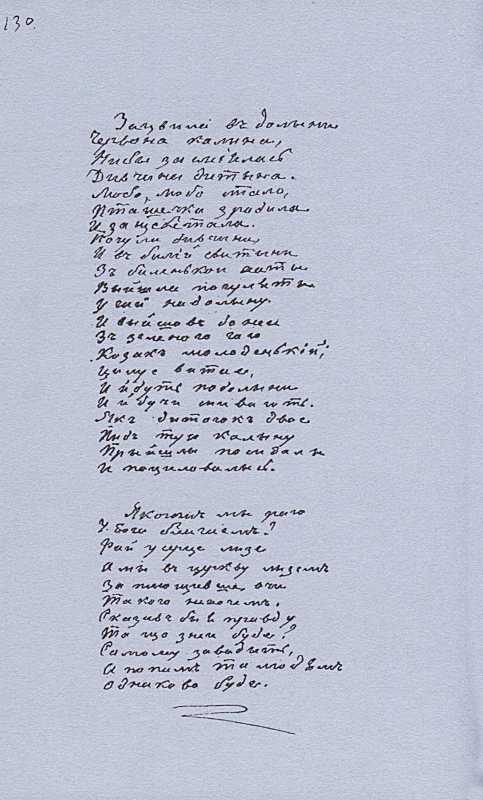 130.
Зацвила въ долыни
Червона калына,
Ныбы засміялась
Дивчина дытына.
Любо, любо стало,
Пташечка зрадила
И защебетала.
Почула дивчина,
И въ билій свытыни
Зъ биленькои хаты
Выйшла погуляты
У гай на долыну.
И выйшовъ до неи
Зъ зеленого гаю
Козакъ молоденькій,
Цилує витає,
И йдуть по долыни
И йдучи спивають.
Якъ диточокъ двоє
Пидъ тую калыну
Прыйшлы посидалы
И поцилувалысь.
Якогожъ мы раю
У Бога благаємъ?
Рай у серце лизе
А мы въ церкву лиземъ
Заплющивше очи
Такого нехочемъ.
Сказавъ бы я правду
Та що з неи буде?
Самому завадыть,
А попамъ та людямъ
Однаково буде.